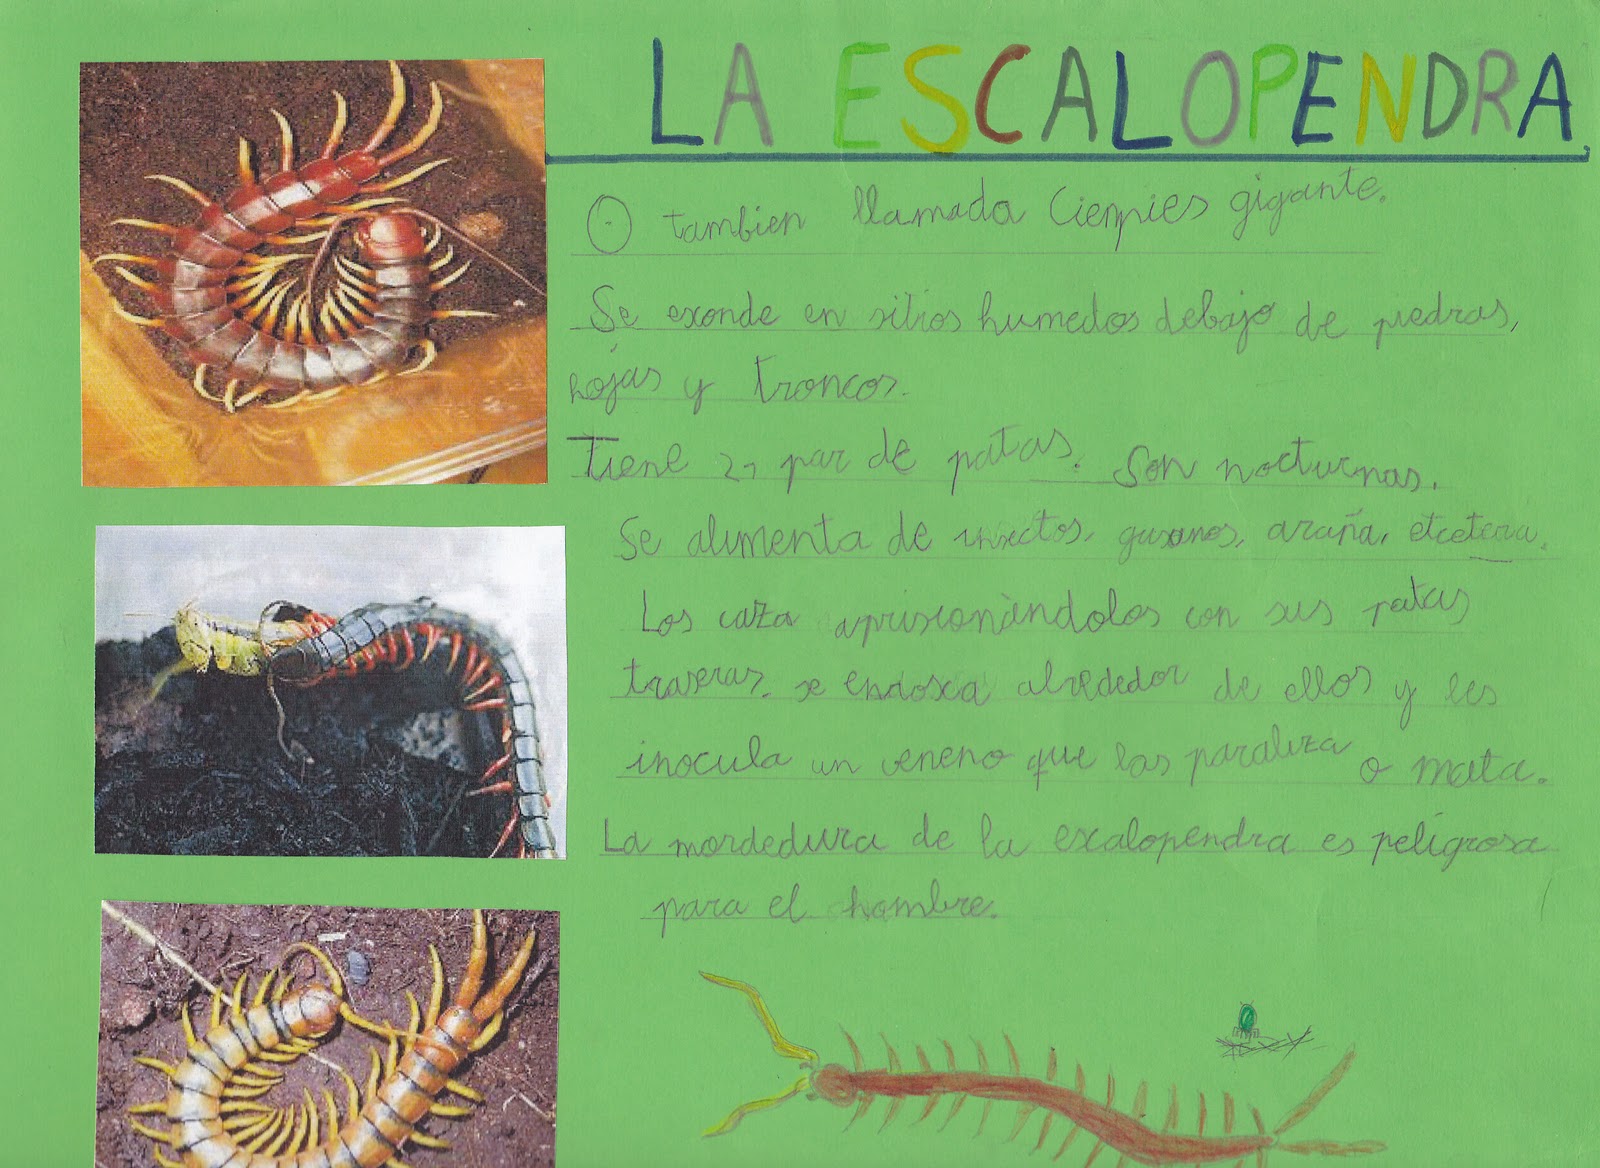 LA ESCALOPENDRA
O tambien llamada Ciempies gigante.
Se exonde en sitios humedos debajo de piedras,
hojas y troncos.
Tiene 21 par de patas. Son nocturnas.
Se alimenta de insectos, gusanos, araña, etcetera.
Los caza aprisionandolos con sus patas
traseras. se enrosca alrededor de ellos y les
inocula un veneno que las paraliza o mata.
La mordedura de la escalopendra es peligrosa
para el hombre.